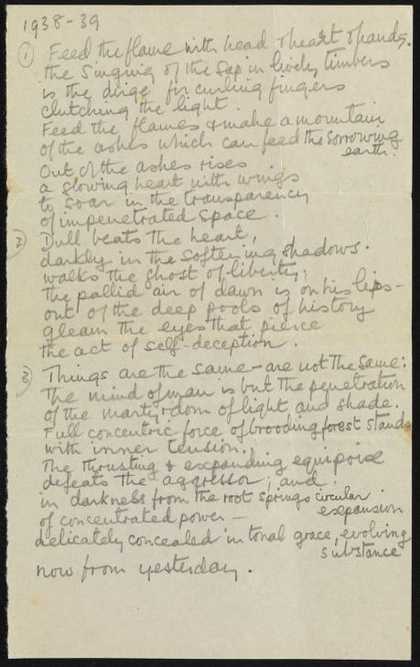 1938-39
① Feed the flame with head & heart & hands.
The singing of the sap in lively timbers
is the dirge for curling fingers
clutching the light.
Feed the flames & make a mountain
of the ashes which can feed the sorrowing
earth.
Out of the ashes rises
a glowing heart with wings
to soar in the transparency
of impenetrated space.
② Dull beats the heart,
darkly in the softening shadows.
walks the ghost of liberty;
The pallid air of dawn is on his lips—
out of the deep pools of history
gleam the eyes that pierce
the act of self-deception.
③ Things are the same – are not the same:
The mind of man is but the penetration
of the martyrdom of light and shade.
Full concentric force of brooding forest stands
with inner tension.
The thrusting & expanding equipoise
defeats the aggressor, and
in darkness from the root springs circular
expansion
of concentrated power —
delicately concealed in tonal grace, evolving
substance
now from yesterday.